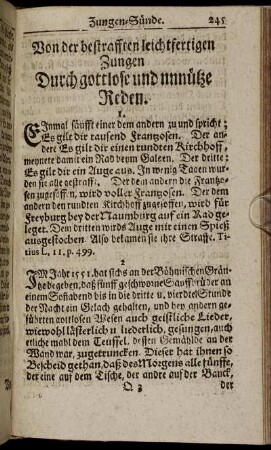 Zungen-Sünde. 245
Von der bestrafften leichtfertigen
Zungen
Durch gottlose und unnütze
Reden.
1.
EInmal säufft einer dem andern zu und spricht:
Es gilt dir tausend Frantzosen. Der an-
dere Es gilt dir einen rundten Kirchhoff/
meynete damit ein Rad beym Galgen. Der dritte:
Es gilt dir ein Auge aus. In wenig Tagen wur-
den sie alle gestrafft. Der dem andern die Frantzo-
sen zugesoffen, wird voller Frantzosen. Der dem
andern den rundten Kirchhoff zugesoffen, wird für
Freyburg bey der Naumburg auf ein Rad ge-
leget. Dem dritten wirds Auge mit einen Spieß
ausgestochen. Also bekamen sie ihre Straffe. Ti-
tius L. 11. p. 499.
2
IM Jahr 1551. hat sichs an der Böhmischen Grän-
tze begeben, daß fünff geschworne Sauffbrüder an
einem Sontabend bis in die dritte u. vierdte Stunde
der Nacht ein Gelach gehalten, und bey andern ge-
führten gottlosen Wesen auch geistliche Lieder,
wiewohl lästerlich u. liederlich, gesungen, auch
etliche mahl dem Teuffel, dessen Gemählde an der
Wand war, zugetruncken. Dieser hat ihnen so
Bescheid gethan, daß des Morgens alle fünffe,
der eine auf dem Tische, der andre auf der Banck,
Q 3 der